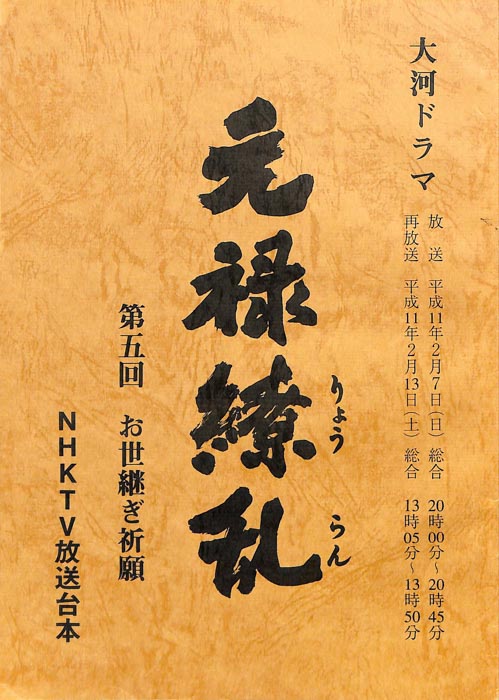 大河ドラマ
放送 平成11年2月7日(日) 総合 20時00分〜20時45分
再放送 平成11年2月13日(土) 総合 13時05分〜13時50分
元禄繚乱
りょう らん
第五回 お世継ぎ祈願
NHKTV放送台本